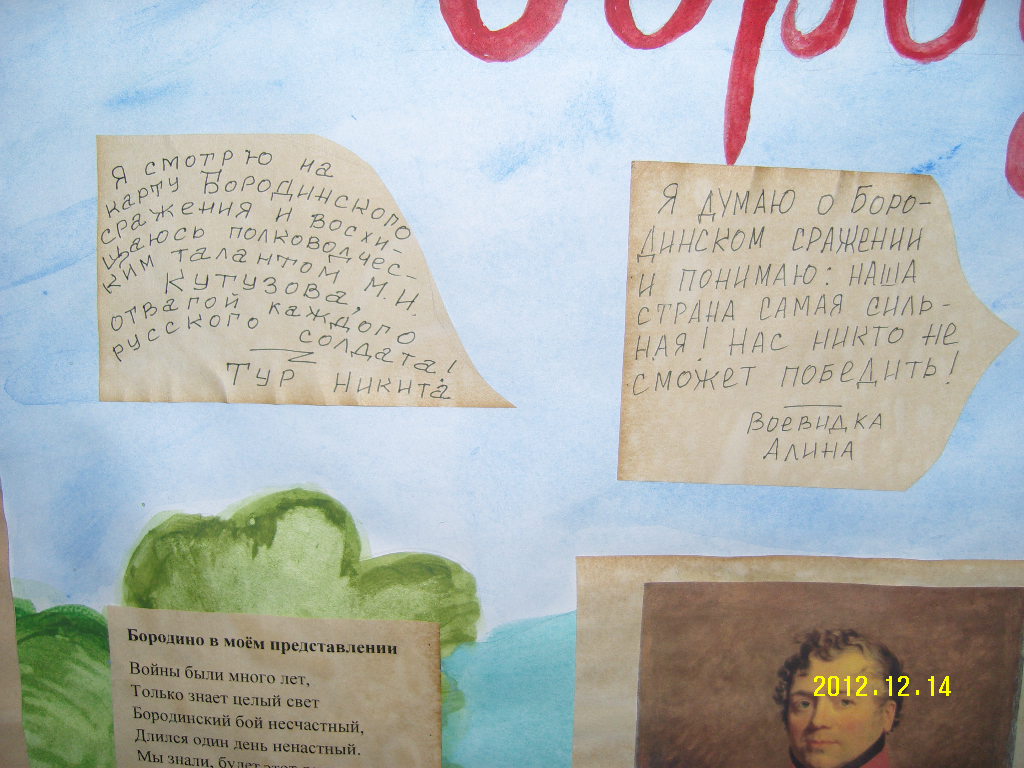 Я смотрю на
карту Бородинского
сражения и восхи-
щаюсь полководчес-
ким талантом М.И.
Кутузова,
отвагой каждого
русского солдата!
Тур Никита
Я думаю о Боро-
динском сражении
и понимаю: наша
страна самая силь-
ная! Нас никто не
сможет победить!
Воевидка
Алина
Бородино в моём представлении
Войны были много лет,
Только знает целый свет
Бородинский бой несчастный,
Длился один день ненастный.
Мы знали, будет этот
2012.12.14